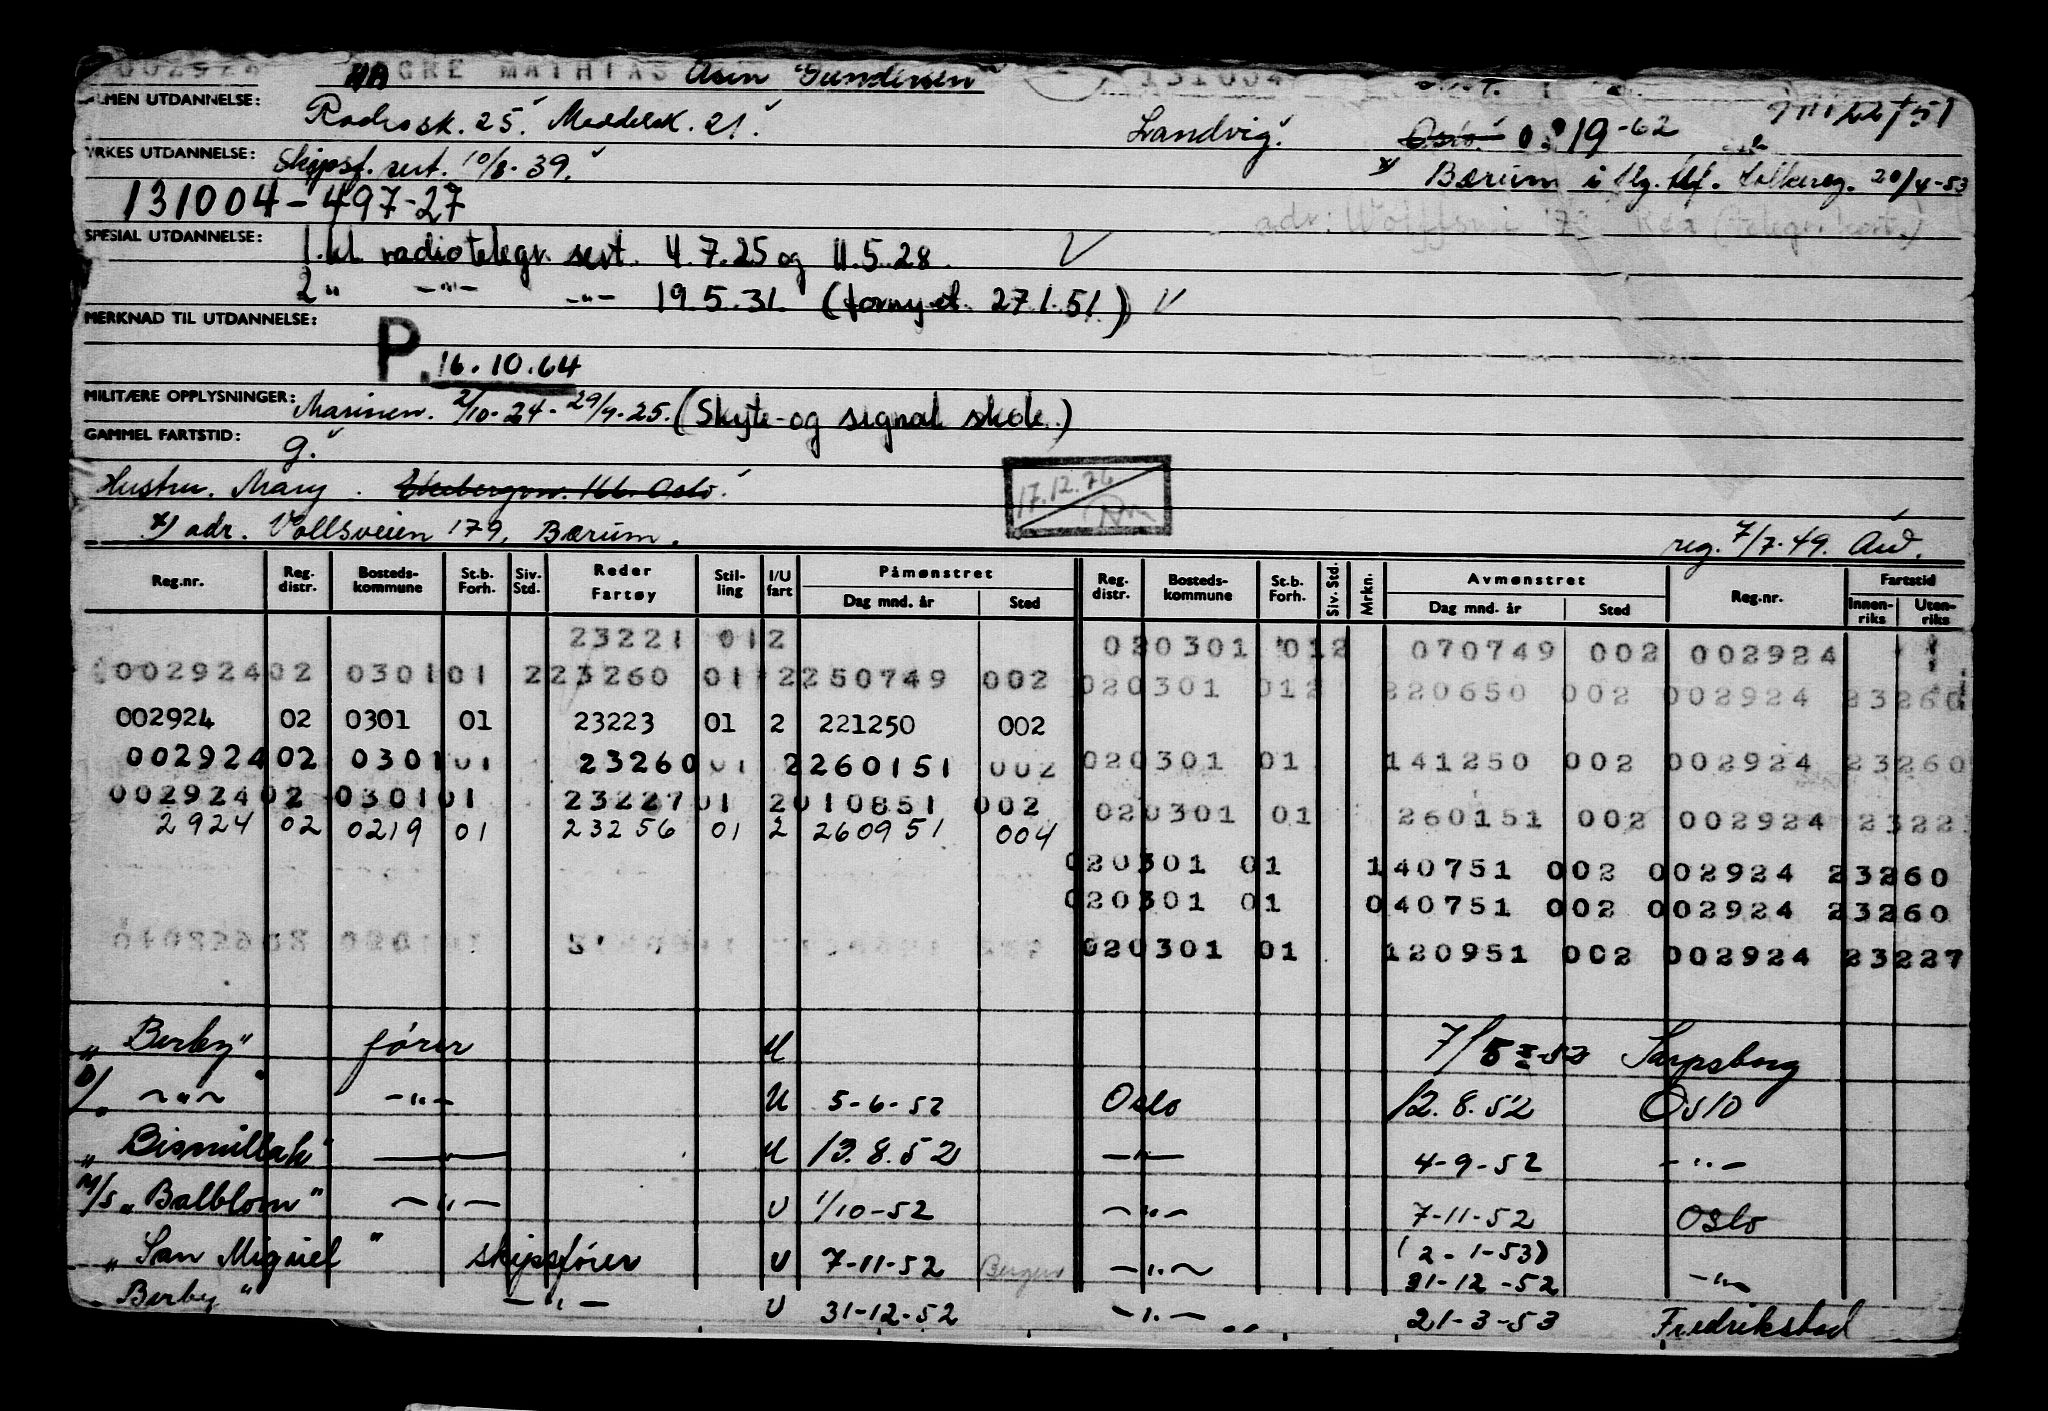 GRE MATHIAS Asen "Gundersen" 131004
ALMEN UTDANNELSE: Radiosk. 25. Middelsk. 21. Landvig. Oslo 0219-62
YRKES UTDANNELSE: Skipsf. sert. 10/8-39. x) Bærum i flg. folkereg. 20/4-53
131004-497-27
adr:
SPESIAL UTDANNELSE: 1. kl. radiotelegr. sert. 4.7.25 og 11.5.28. V
2 " -"- -"- 19.5.31. (fornyet 27.1.51) V
MERKNAD TIL UTDANNELSE:
P. 16.10.64
MILITÆRE OPPLYSNINGER: Marinen. 2/10-24- 29/9-25. (Skyte- og signal skole.)
GAMMEL FARTSTID: g.
Hustru. Mary. Ekebergvn. 166. Oslo.
17.12.76
x) adr. Vollsveien 179, Bærum. reg. 7/7-49.
Reg.nr. Reg. distr. Bosteds-kommune St.b. Forh. Siv. Std. Reder Fartøy Stil-ling I/U fart Påmønstret Dag mnd. år Sted Reg. distr. Bosteds-kommune St.b. Forh. Siv. Std. Mrkn. Avmønstret Dag mnd. år Sted Reg.nr. Fartstid Innen-riks Uten-riks
23221 012 020301 012 070749 002 002924
002924 02 0301 01 2 23260 01 2 250749 002 020301 012 220650 002 002924 23260
002924 02 0301 01 23223 01 2 221250 002
002924 02 0301 01 23260 01 2 260151 002 020301 01 141250 002 002924 23260
002924 02 0301 01 23227 01 2 010851 002 020301 01 260151 002 002924 2322
2924 02 0219 01 23256 01 2 260951 004
020301 01 140751 002 002924 23260
020301 01 040751 002 002924 23260
020301 01 120951 002 002924 23227
"Berby" fører U 7/5-52 Sarpsborg
D/ -"- -"- U 5-6-52 Oslo 12.8.52 Oslo
"Bismillah" -"- U 13.8.52 -"- 4-9-52 -"-
M/S "Balblom" -"- U 1/10-52 -"- 7-11-52 Oslo
"San Miguel" skipsfører U 7-11-52 Bergen -"- (2-1-53) 31-12-52 -"-
"Berby" -"- U 31-12-52 -"- 21-3-53 Fredrikstad